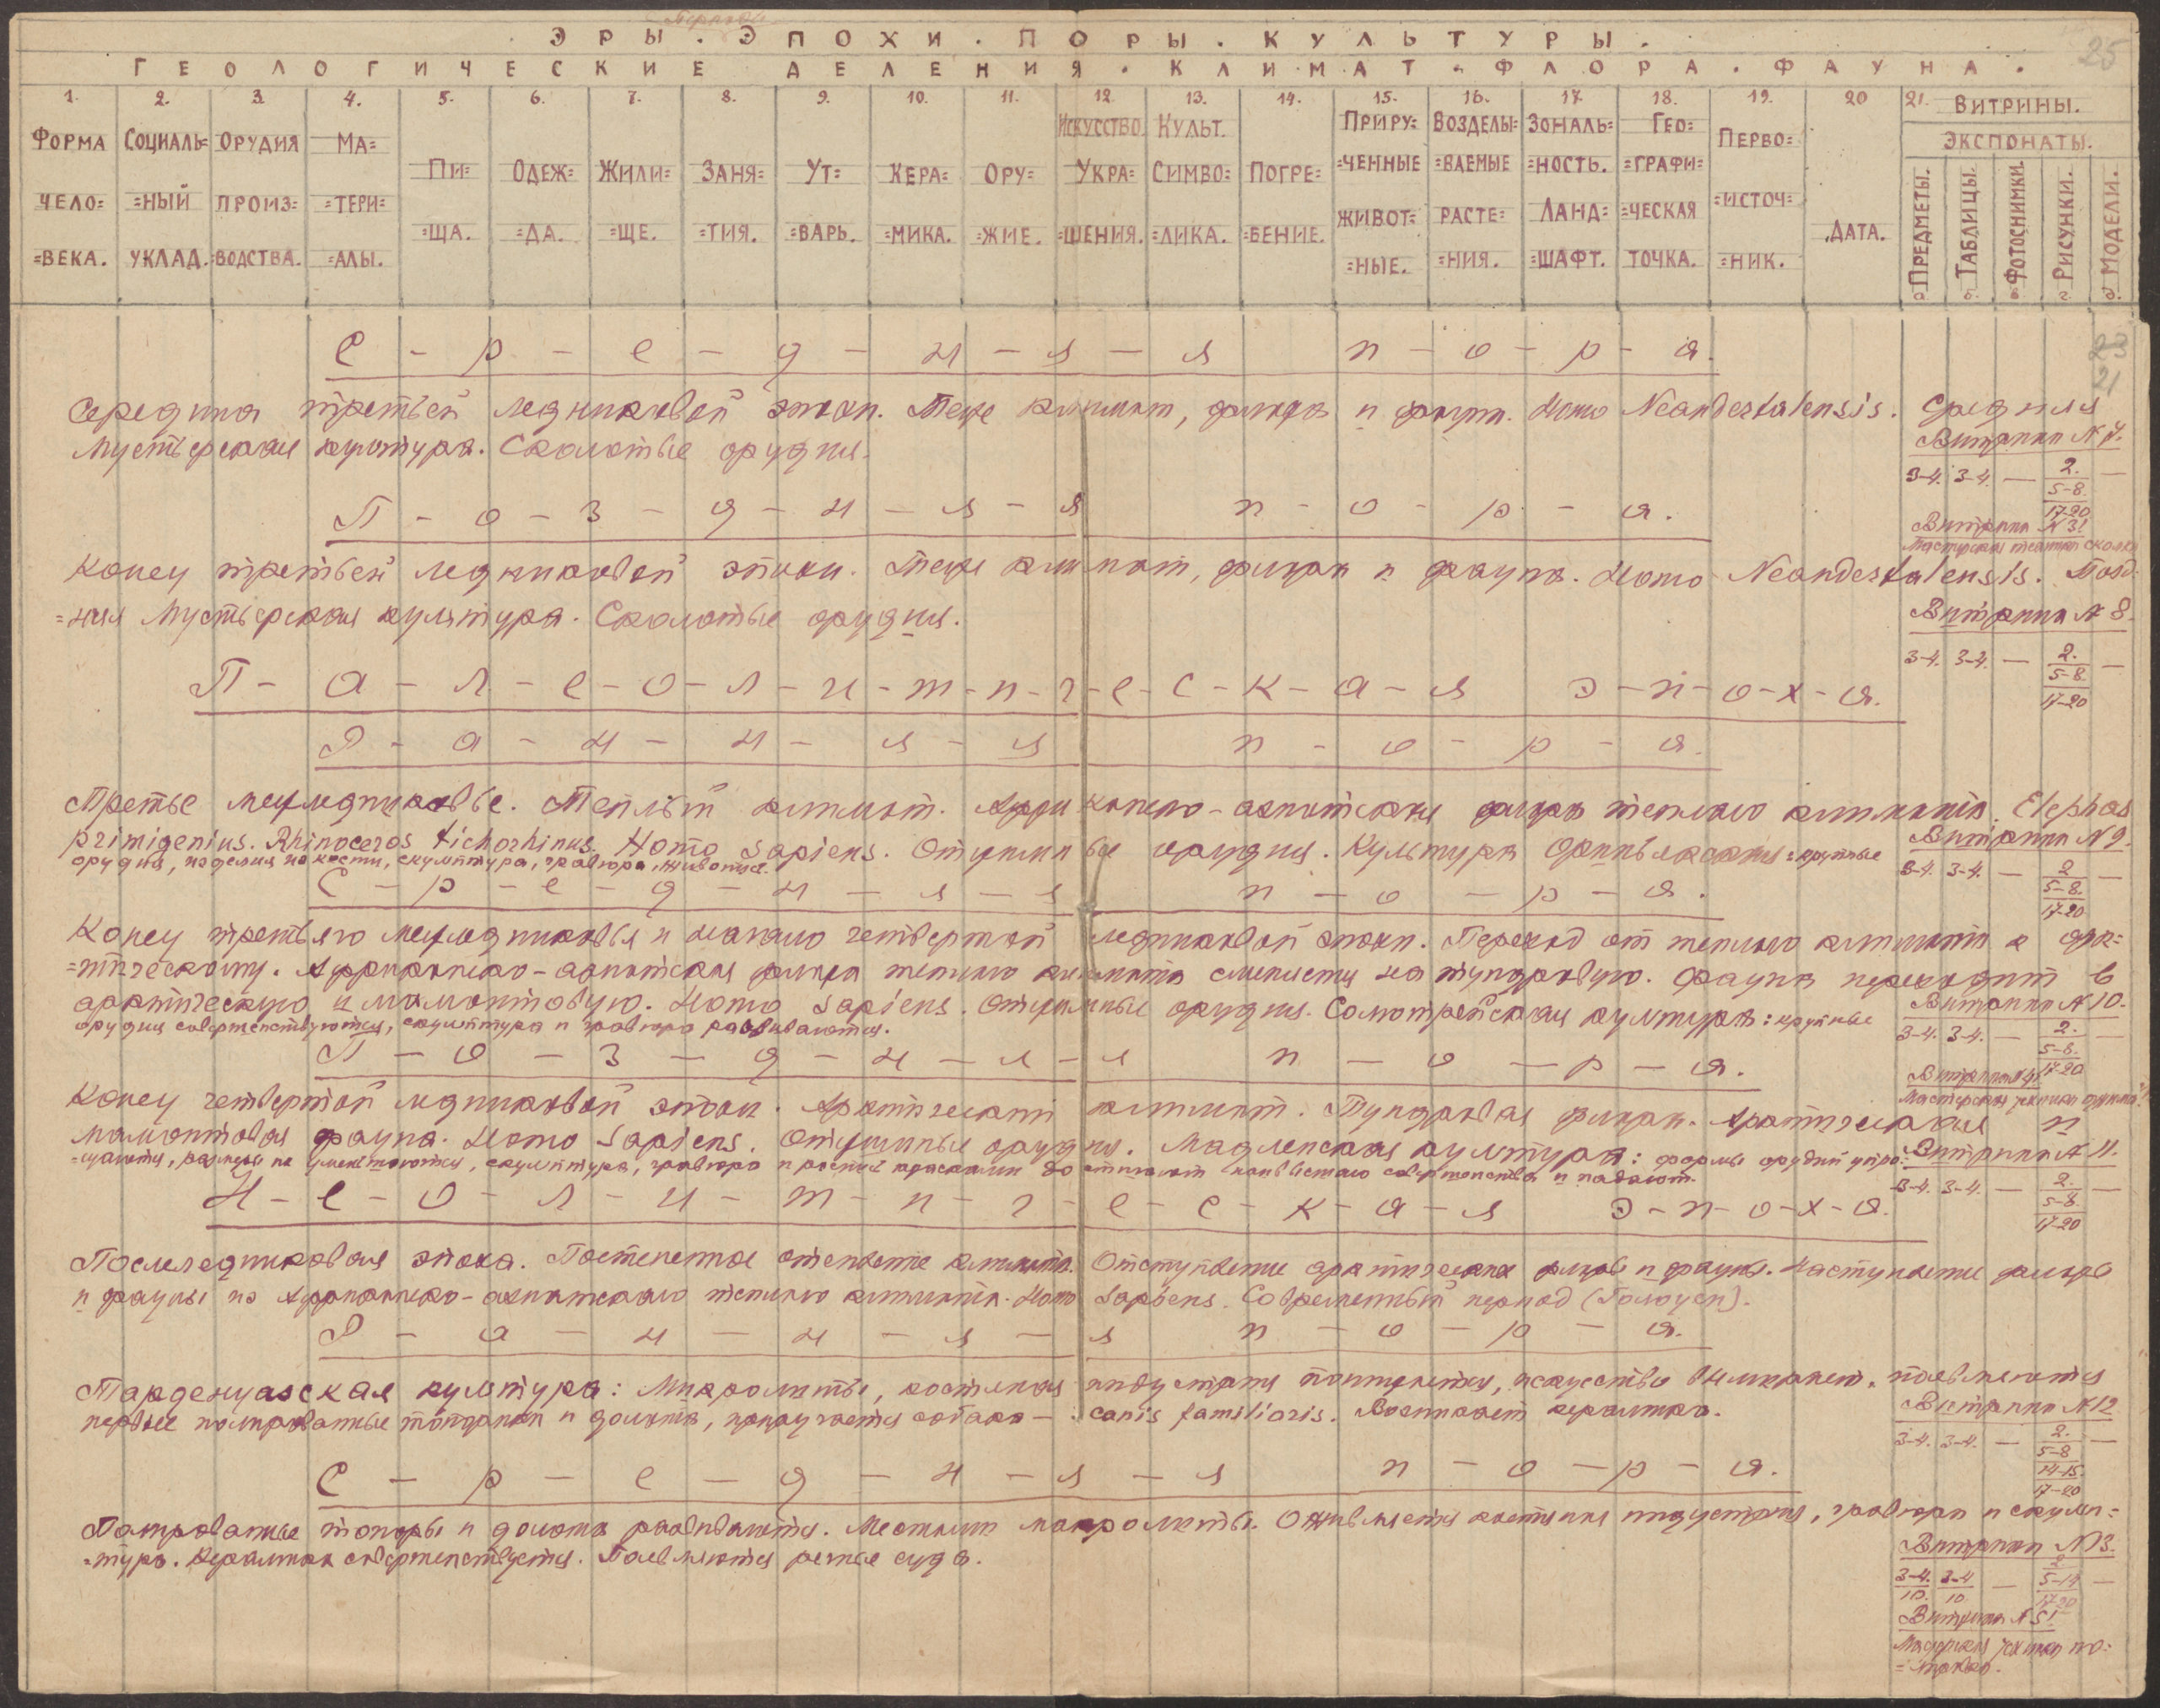 Периоды
ЭРЫ. ЭПОХИ. ПОРЫ. КУЛЬТУРЫ.
ГЕОЛОГИЧЕСКИЕ ДЕЛЕНИЯ. КЛИМАТ. ФЛОРА. ФАУНА.
25
1. 2. 3. 4. 5. 6. 7. 8. 9. 10. 11. 12. 13. 14. 15. 16. 17. 18. 19. 20 21. ВИТРИНЫ.
ЭКСПОНАТЫ.
ФОРМА ЧЕЛО= =ВЕКА.
СОЦИАЛЬ= =НЫЙ УКЛАД.
ОРУДИЯ ПРОИЗ= =ВОДСТВА.
МА= =ТЕРИ= =АЛЫ.
ПИ= =ЩА.
ОДЕЖ= =ДА.
ЖИЛИ= =ЩЕ.
ЗАНЯ= =ТИЯ.
УТ= =ВАРЬ.
КЕРА= =МИКА.
ОРУ= =ЖИЕ.
ИСКУССТВО. УКРА= =ШЕНИЯ.
КУЛЬТ. СИМВО= =ЛИКА.
ПОГРЕ= =БЕНИЕ.
ПРИРУ= =ЧЕННЫЕ ЖИВОТ= =НЫЕ.
ВОЗДЕЛЫ= =ВАЕМЫЕ РАСТЕ= =НИЯ.
ЗОНАЛЬ= =НОСТЬ. ЛАНД= =ШАФТ.
ГЕО= =ГРАФИ= =ЧЕСКАЯ ТОЧКА.
ПЕРВО= =ИСТОЧ= =НИК.
ДАТА.
а. ПРЕДМЕТЫ.
б. ТАБЛИЦЫ.
в. ФОТОСНИМКИ.
г. РИСУНКИ.
д. МОДЕЛИ.
С-р-е-д-н-я-я п-о-р-а.
21
Середина третьей ледниковой эпохи. Теже климат, флора и фауна. Homo Neandertalensis. Средняя
Мустьерская культура. Сколотые орудия.
Витрина №7.
3-4. 3-4. — 2. —
5-8.
17-20
П-о-з-д-н-я-я п-о-р-а.
Витрина №3!
Мастерская техники сколки
Конец третьей ледниковой эпохи. Теже климат, флора и фауна. Homo Neandertalensis. Позд=
=няя Мустьерская культура. Сколотые орудия.
Витрина №8.
3-4. 3-4. — 2. —
5-8.
17-20
П-а-л-е-о-л-и-т-и-ч-е-с-к-а-я э-п-о-х-а.
Р-а-н-н-я-я п-о-р-а.
Третье межледниковье. Теплый климат. Африканско-азиатская флора теплого климата. Elephas
primigenius. Rhinoceros tichorhinus. Homo Sapiens. Отжимные орудия. Культура Ориньякская: крупные
орудия, изделия из кости, скульптура, гравюра, живопись.
Витрина №9.
3-4. 3-4. — 2 —
5-8.
17-20
С-р-е-д-н-я-я п-о-р-а.
Конец третьяго межледниковья и начало четвертой ледниковой эпохи. Переход от теплого климата к арк=
=тическому. Африканско-азиатская флора теплого климата сменяется на тундровую. Фауна переходит в
арктическую и мамонтовую. Homo Sapiens. Отжимные орудия. Солютрейская культура: крупные
орудия совершенствуются, скульптура и гравюра развиваются.
Витрина №10.
3-4. 3-4. — 2. —
5-8.
17-20
П-о-з-д-н-я-я п-о-р-а.
Витрина №4!
Мастерская техники отжима
Конец четвертой ледниковой эпохи. Арктический климат. Тундровая флора. Арктическая и
мамонтовая фауна. Homo Sapiens. Отжимные орудия. Мадленская культура: формы орудий упро=
=щаются, размеры их уменьшаются, скульптура, гравюра и роспись красками достигают наивысшего совершенства и падают.
Витрина №11.
3-4. 3-4. — 2. —
5-8.
17-20
Н-е-о-л-и-т-и-ч-е-с-к-а-я э-п-о-х-а.
Послеледниковая эпоха. Постепенное отепление климата. Отступление арктических флоры и фауны. Наступление флоры
и фауны из Африканско-азиатского теплого климата. Homo Sapiens. Современный период (Голоцен).
Р-а-н-н-я-я п-о-р-а.
Тарденуазская культура: Микролиты, костяная индустрия понижается, искусство вымирает, появляются
первые полированные топорики и долота, приручается собака — canis familiaris. Возникает керамика.
Витрина №12
3-4. 3-4. — 2. —
5-8
14-15.
17-20
С-р-е-д-н-я-я п-о-р-а.
Полированные топоры и долота развиваются. Местами макролиты. Оживляется костяная индустрия, гравюра и скульп=
=тура. Керамика совершенствуется. Появляются речные суда.
Витрина №13.
3-4. 3-4 — 2 —
10. 10 5-14
17-20
Витрина №5!